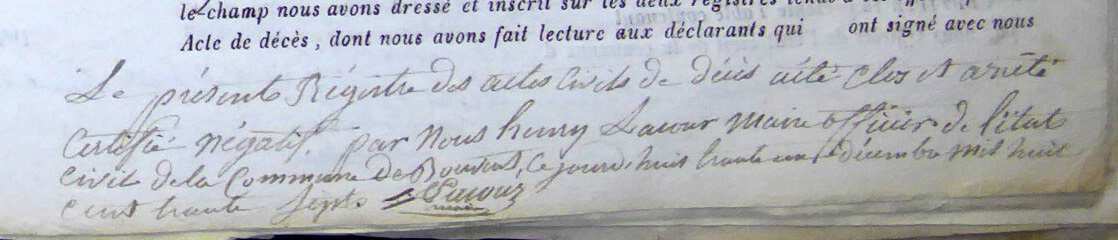 le champ nous avons dressé et inscrit sur les deux registres
Acte de décès, dont nous avons fait lecture aux déclarants qui ont signé avec nous
Le présente Régistre des actes Civils de décès aété clos et arrêté
Certifié négatif. par nous henry Lacour maire officier de l'état
civil de la Commune de ce jourd'huit trante un décembre mil huit
cent trante sept Lacour